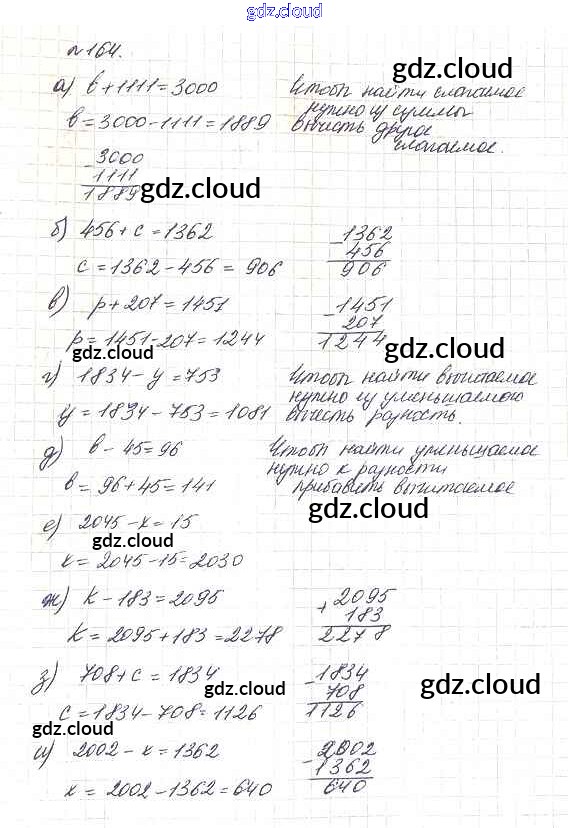 gdz.cloud
№164.
gdz.cloud
а) в+1111=3000 Чтобы найти слагаемое
нужно из суммы
в=3000-1111=1889 вычесть другое
слагаемое.
- 3000
1111
1889
gdz.cloud gdz.cloud
б) 456+с=1362 - 1362
456
с=1362-456=906 906
в) р+207=1451 - 1451
207
р=1451-207=1244 1244
gdz.cloud gdz.cloud
г) 1834-у=753 Чтобы найти вычитаемое
нужно из уменьшаемого
у=1834-753=1081 вычесть разность.
д) в-45=96 Чтобы найти уменьшаемое
нужно к разности
в=96+45=141 прибавить вычитаемое
gdz.cloud
е) 2045-х=15
gdz.cloud
х=2045-15=2030
ж) к-183=2095 + 2095
183
к=2095+183=2278 2278
gdz.cloud
з) 708+с=1834 - 1834
708
gdz.cloud gdz.cloud
с=1834-708=1126 1126
gdz.cloud
и) 2002-х=1362 - 2002
1362
х=2002-1362=640 640
gdz.cloud